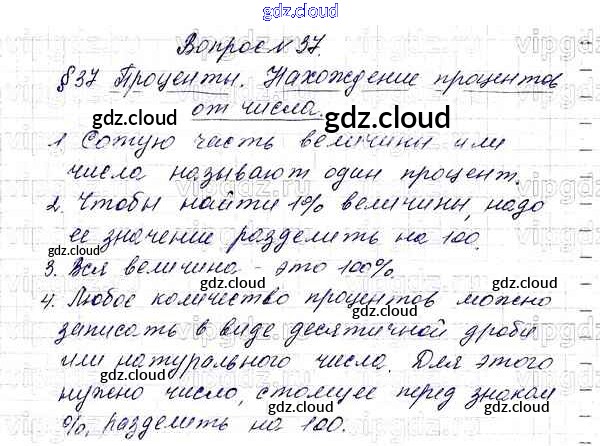 gdz.cloud
Вопрос № 37.
§37 Проценты. Нахождение процентов
от числа.
1. Сотую часть величины или
числа называют один процент.
2. Чтобы найти 1% величины, надо
ее значение разделить на 100.
3. Вся величина - это 100%.
4. Любое количество процентов можно
записать в виде десятичной дроби
или натурального числа. Для этого
нужно число, стоящее перед знаком
%, разделить на 100.